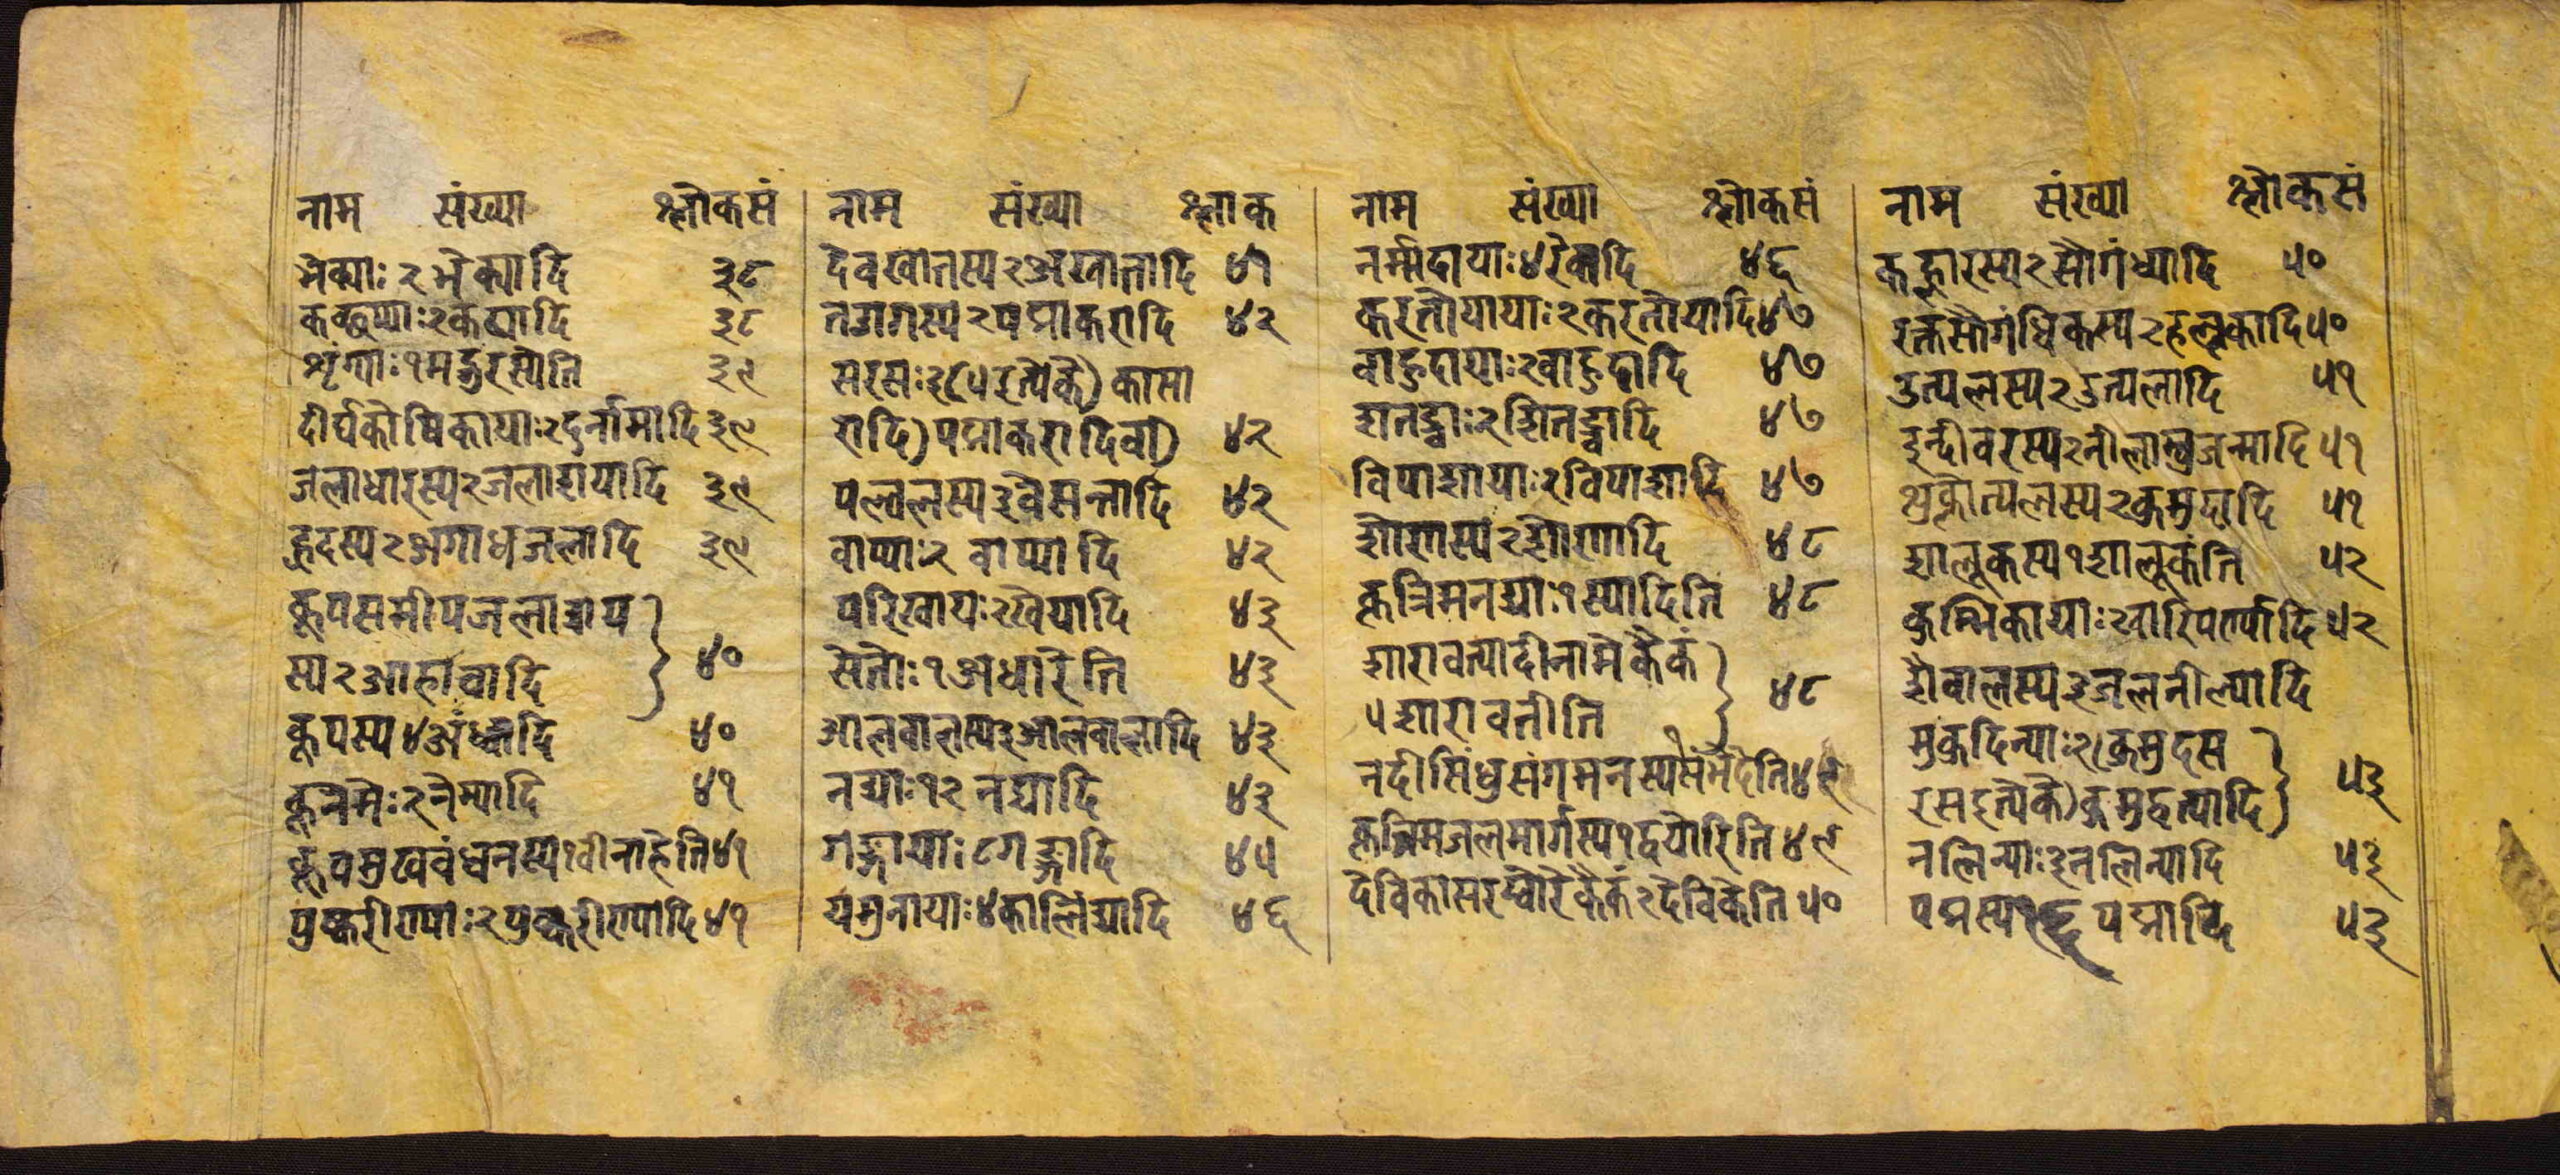 नाम संख्या श्लोकसं
भेक्याः २ भेक्यादि ३८
कच्छप्याः २ कच्छपादि ३८
शृंग्याः १ मद्गुरस्येति ३९
दीर्घकोषिकायाः २ दुर्नामादि ३९
जलाधारस्य २ जलाशयादि ३९
ह्रदस्य २ अगाधजलादि ३९
कूपसमीपजलाशय
स्य २ आहावादि ४०
कूपस्य ४ अंध्वादि ४०
कूपनेमेः २ नेम्यादि ४१
कूपमुखबंधनस्य १ वीनाहेति ४१
पुष्करीण्याः २ पुष्करीण्यादि ४१
नाम संख्या श्लोक
देवखातस्य २ अखातादि ४१
तडागस्य २ पद्माकरादि ४२
सरसः ३ (५ इत्येके) कासा
रादि) पद्माकरादिर्वा) ४२
पल्वलस्य ३ वेसन्तादि ४२
वाप्याः २ वाप्यादि ४२
परिखायः २ खेयादि ४३
सेतोः १ अधारेति ४३
आलवालस्य ३ आलवालादि ४३
नद्याः १२ नद्यादि ४३
गङ्गायाः ८ गङ्गादि ४५
यमुनायाः ४ कालिंद्यादि ४६
नाम संख्या श्लोकसं
नर्म्मदायाः ४ रेवादि ४६
करतोयायाः २ करतोयादि ४७
बाहुदायाः २ बाहुदादि ४७
शतद्र्वाः २ शितद्र्वादि ४७
विपाशायाः २ विपाशादि ४७
शोणस्य २ शोणादि ४८
कृत्रिमनद्याः १ स्यादिति ४८
शरावत्यादीनामेकैकं
५ शरावतीति ४८
नदीसिंधुसंगमनस्य १ संभेदेति ४९
कृत्रिमजलमार्गस्य १ द्वयोरिति ४९
देविकासरय्वोरेकैकं २ देविकेति ५०
नाम संख्या श्लोकसं
कह्लारस्य २ सौगंध्यादि ५०
रक्तसौगंधिकस्य २ हल्लकादि ५०
उत्पलस्य २ उत्पलादि ५१
इन्दीवरस्य २ नीलाम्बुजन्मादि ५१
शुक्लोत्पलस्य २ कुमुदादि ५१
शालूकस्य १ शालूकेति ५२
कुम्भिकायाः २ वारिपर्ण्यादि ५२
शेवालस्य ३ जलनीत्यादि
मुकुदिन्याः २ (कुमुदस
रसइत्येके) कुमुद्वत्यादि ५३
नलिन्याः ३ नलिन्यादि ५३
पद्मस्य १६ पद्मादि ५३